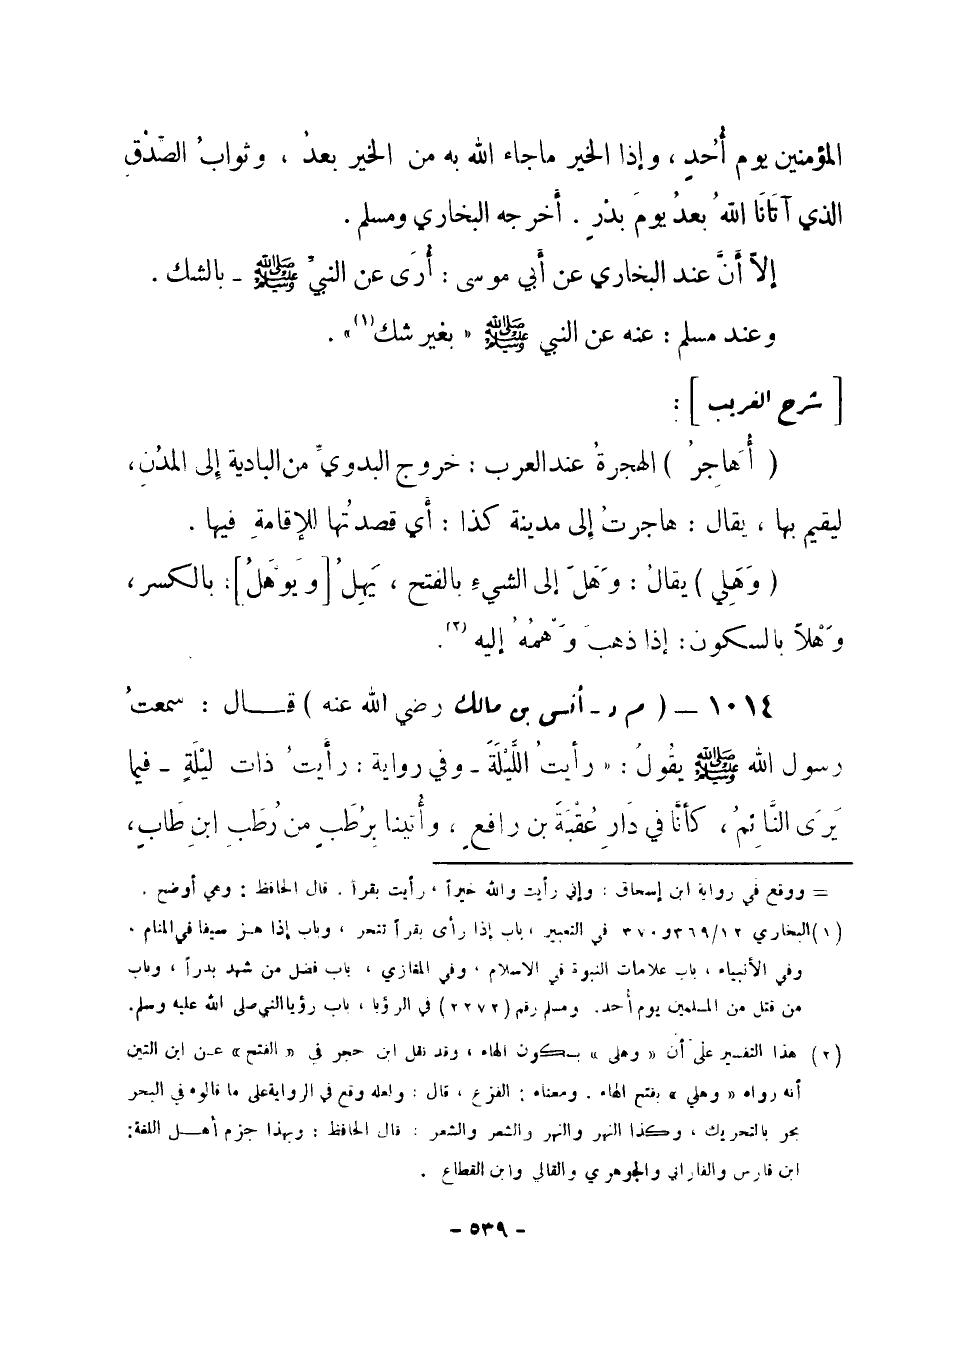 المؤمنين يوم أُحدٍ ، وإذا الخير ماجاء الله به من الخير بعدُ ، وثوابُ الصِّدْقِ
الذي آتَانَا اللهُ بعدُ يومَ بدْرٍ . أخرجه البخاري ومسلم .
إلاّ أنَّ عند البخاري عن أبي موسى : أُرَى عن النبيِّ ﷺ ـ بالشك .
وعند مسلم : عنه عن النبي ﷺ « بغير شك(١)» .
[ شرح الغريب ] :
( أُهاجِرُ ) الهجرةُ عندالعرب : خروج البدويِّ من البادية إلى المدُنِ،
ليقيم بها ، يقال : هاجرتُ إلى مدينة كذا : أي قصدتُها للإقامةِ فيها .
( وَهَلِي ) يقالُ : وَهَلَ إلى الشيءِ بالفتح ، يَهِلُ [ويَوْهَلُ]: بالكسر،
وَهْلاً بالسكون: إذا ذهبَ وَهْمُهُ إليه (٢).
١٠١٤ ـ ( م د ـ أنسى بن مالك رضي الله عنه ) قــال : سمعتُ
رسول الله ﷺ يقُولُ : « رأيتُ اللَّيْلَةَ ـ وفي رواية : رأيتُ ذات لَيْلَةٍ ـ فيما
يَرَى النَّائِمُ ، كأنَّا في دَارِ عُقبَةَ بن رافعٍ ، وأُتينا برُطَبٍ من رُطَبِ ابنِ طَابٍ،
= ووقع في رواية ابن إسحاق : وإني رأيت والله خيراً ، رأيت بقراً . قال الحافظ : وهي أوضح .
(١) البخاري ٣٦٩/١٢ و٣٧٠ في التعبير ، باب إذا رأى بقراً تنحر ، وباب إذا هز سيفا في المنام ،
وفي الأنبياء ، باب علامات النبوة في الاسلام ، وفي المغازي ، باب فضل من شهد بدراً ، وباب
من قتل من المسلمين يوم أحد. ومسلم رقم (٢٢٧٢) في الرؤيا ، باب رؤيا النبي صلى الله عليه وسلم.
(٢) هذا التفسير على أن « وهلي » بسكون الهاء ، وقد نقل ابن حجر في « الفتح » عن ابن التين
أنه رواه « وهلي » بفتح الهاء . ومعناه : الفزع ، قال : ولعله وقع في الرواية على ما قالوه في البحر
بحر بالتحريك ، وكذا النهر والنهر والشعر والشعر : قال الحافظ : وبهذا جزم أهل اللغة:
ابن فارس والفارابي والجوهري والقالي وابن القطاع .
- ٥٣٩ -